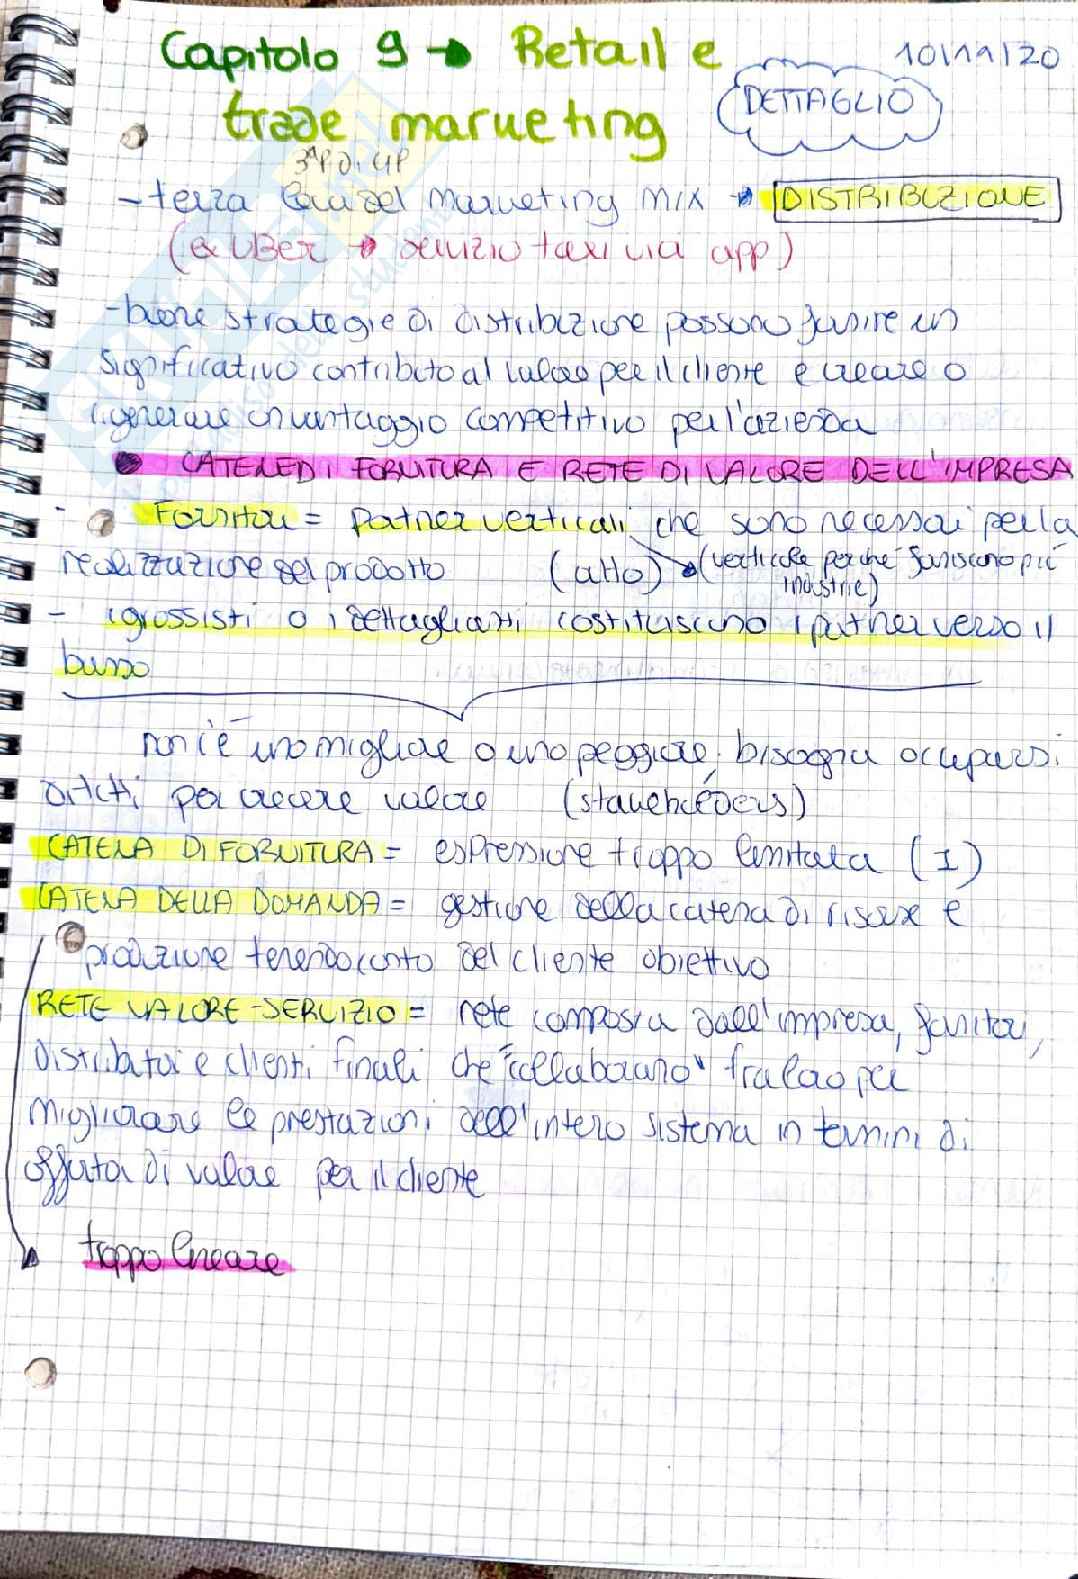 Capitolo 9 → Retail e
10/11/20
trade marketing
DETTAGLIO
3ª P di 4P
- terza leva del marketing mix → DISTRIBUZIONE
(es UBER → servizio taxi via app)
- buone strategie di distribuzione possono fornire un
significativo contributo al valore per il cliente e creare o
rigenerare un vantaggio competitivo per l'azienda
• CATENE DI FORNITURA E RETE DI VALORE DELL'IMPRESA
- Fornitori = partner verticali che sono necessari per la
realizzazione del prodotto (alto) → (verticale perché forniscono più
industrie)
- i grossisti o i dettaglianti costituiscono i partner verso il
basso
non c'è uno migliore o uno peggiore, bisogna occuparsi
di tutti per creare valore (stakeholders)
CATENA DI FORNITURA = espressione troppo limitata (1)
CATENA DELLA DOMANDA = gestione della catena di risorse e
produzione tenendo conto del cliente obiettivo
RETE VALORE-SERVIZIO = rete composta dall'impresa, fornitori,
distributori e clienti finali che "collaborano" fra loro per
migliorare le prestazioni dell'intero sistema in termini di
offerta di valore per il cliente
→ troppo lineare